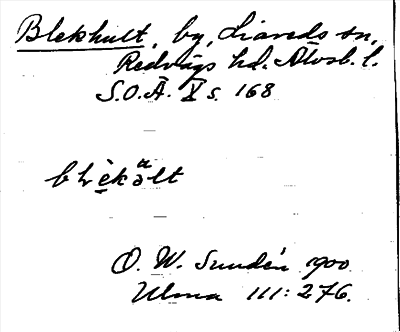 Blekhult, by, Liareds sn,
Redvägs hd. Älvsb. l.
S.O.Ä. X s. 168
O. W. Sundén 1900
Ulma 111:276.